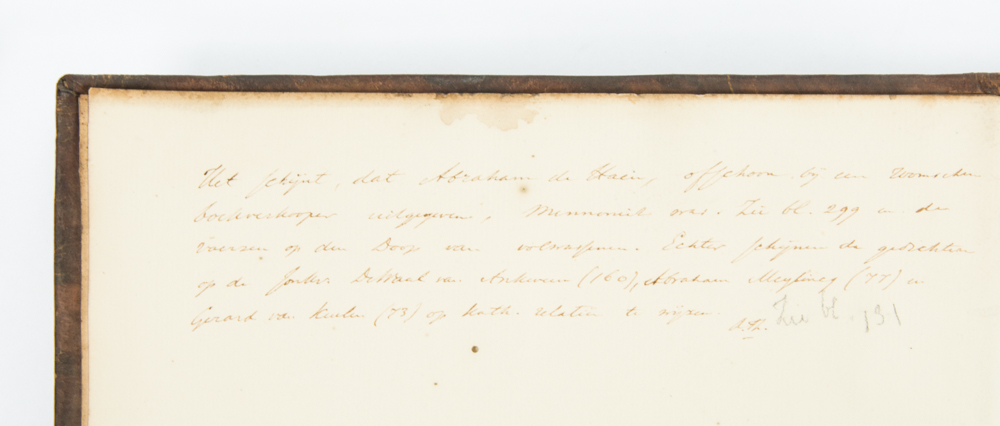 Het schijnt, dat Abraham de Haen, offschoon bij een Roomschen
boekverkooper uitgegeven, Mennoniet was. Zie bl. 299 en de
verzen op den Doop van volwassenen. Echter schijnen de gedichten
op de Jonkvr. De Waal van Ankeveen (160), Abraham Meyling (77) en
Gerard van Keulen (73) op Kath. relatien te wijzen.
A.Th. Zie bl. 191